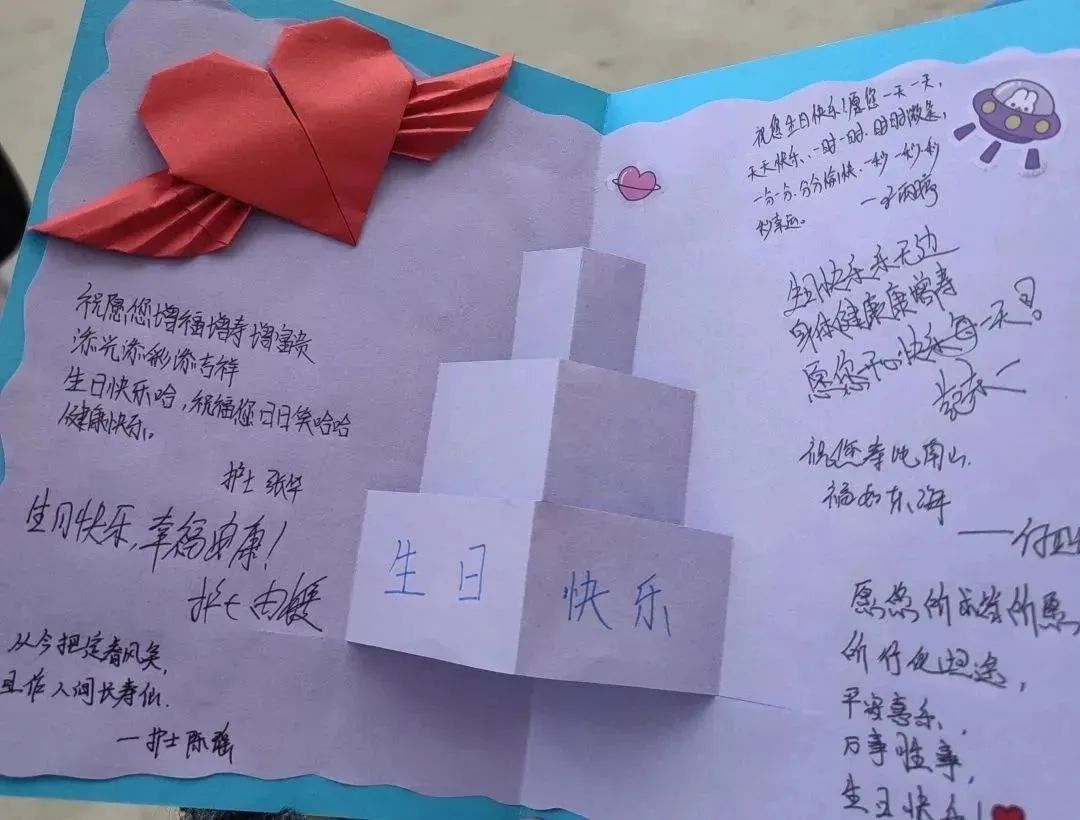 祝愿您增福增寿增富贵
添光添彩添吉祥
生日快乐哈，祝福您日日笑哈哈
健康快乐。
护士 张华
生日快乐，幸福安康！
护士
从今把定春风笑，
且作人间长寿仙.
—护士 陈瑶
生日
快乐
祝您生日快乐！愿您一天一天，
天天快乐、一时一时、时时微笑，
一分一分、分分愉快、一秒一秒、秒
秒幸运。
生日快乐乐天边
身体健康康增寿
愿您开心快乐每一天！
祝您寿比南山.
福如东海
愿您所求皆所愿
所行化坦途，
平安喜乐、
万事胜意，
生日快乐！